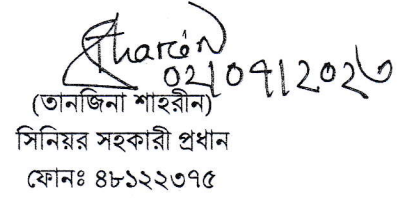 Sharēn
02/07/2023
(তানজিনা শাহরীন)
সিনিয়র সহকারী প্রধান
ফোনঃ ৪৮১২২৩৭৫